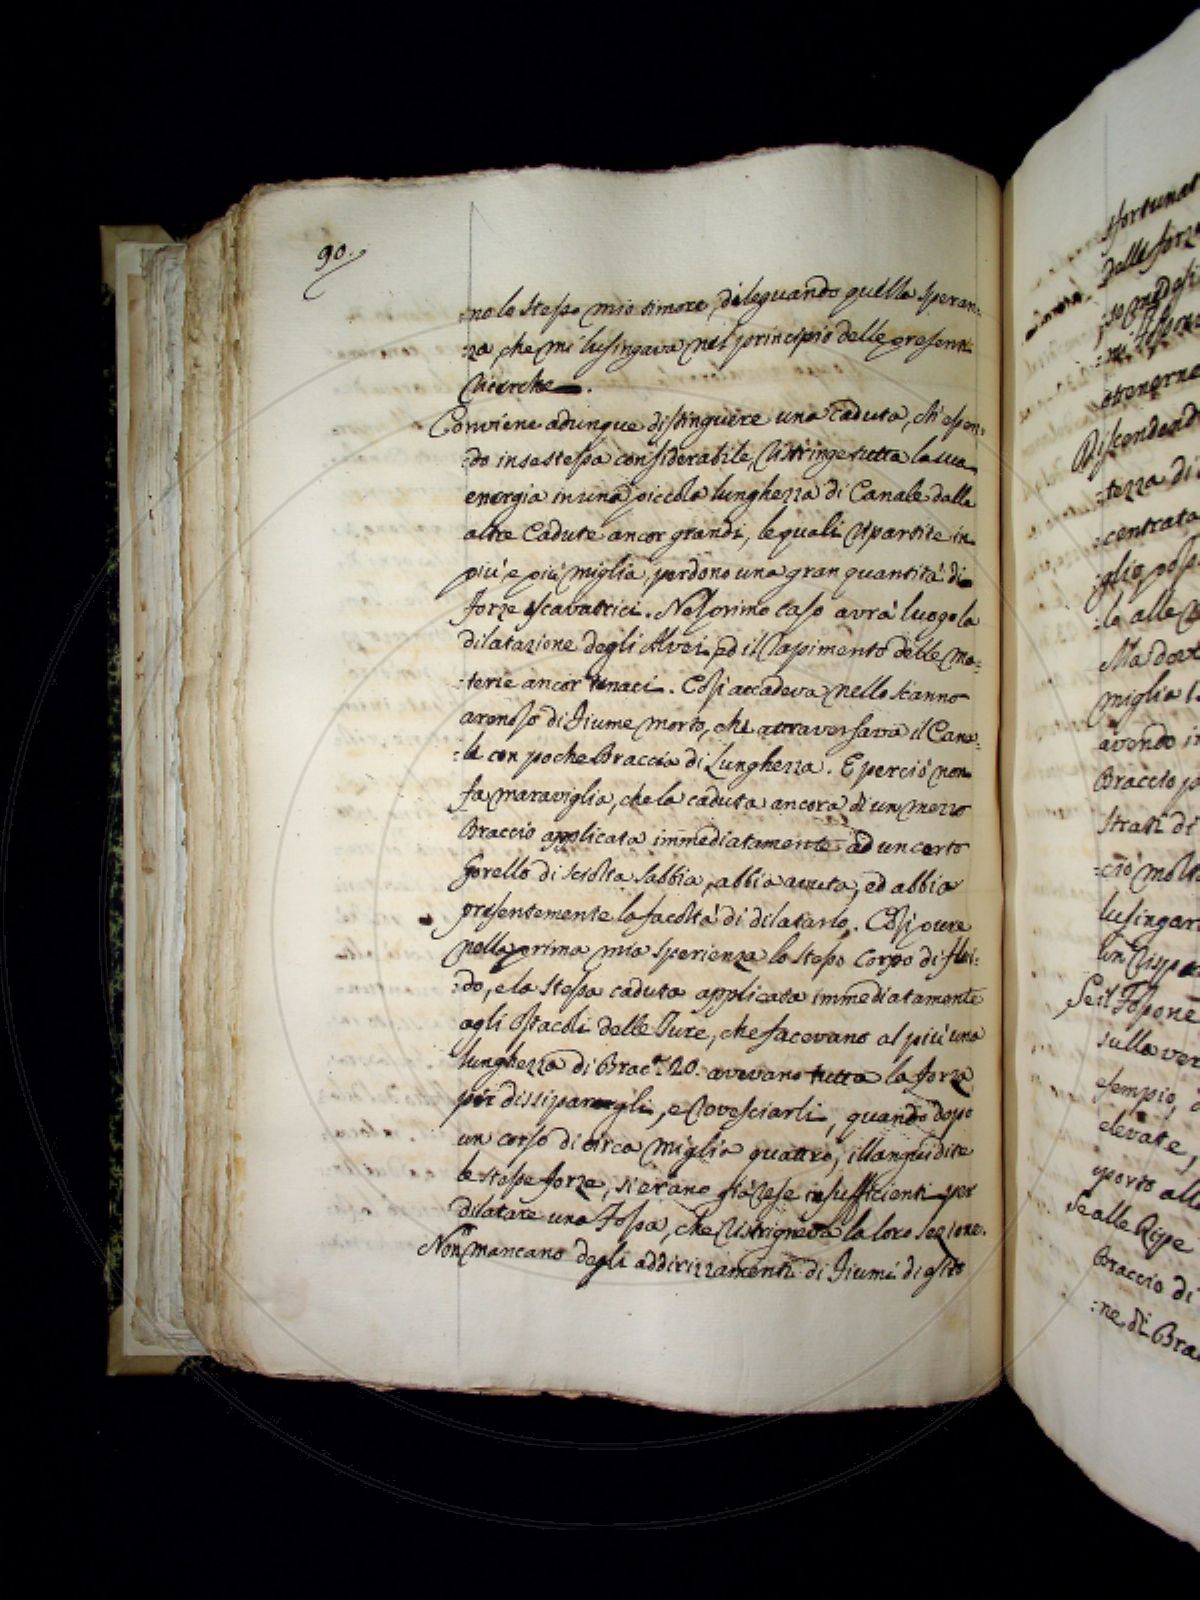 90.
:no lo stesso mio timore, dileguando quella speran:
:za, che mi lusingava nel principio delle presenti
ricerche.
Conviene adunque distinguere una caduta, ch'essen:
:do in se stessa considerabile, ristringe tutta la sua
energia in una piccola lunghezza di Canale dalle
altre Cadute ancor grandi, le quali ripartite in
più, e più miglia, perdono una gran quantità di
forze escavatrici. Nel primo caso avrà luogo la
dilatazione degli Alvei, ed il rapimento delle ma:
:terie ancor tenaci. Così accadeva nello stanno
arenoso di Fiume morto, che attraversava il Cana:
:le con poche Braccia di Lunghezza. E perciò non
fa maraviglia, che la caduta ancora di un mezzo
Braccio applicata immediatamente ad un certo
Gorello di sciolta sabbia, abbia avuta, ed abbia
presentemente la facoltà di dilatarlo. Così pure
nella prima mia sperienza lo stesso Corpo di flui:
:do, e la stessa caduta applicata immediatamente
agli Ostacoli delle Ture, che facevano al più una
lunghezza di Brac. 20. avevano tutta la forza
per dissipargli, e rovesciarli, quando dopo
un corso di circa miglia quattro, illanguidite
le stesse forze, si erano già rese insufficienti per
dilatare una Fossa, che ristrigneva la loro sezione.
Non mancano degli addirizzamenti di Fiumi di esito
sfortunat
delle forze
ottenerne
Discendend
:tezza di
:centrata
:glia poss
:la alle
Ma dov
miglia
avendo in
Braccio p
strati di
:ciò molt
lusingar
Un risp
Se il Fossone
sulla ver
esempio,
elevate,
porto all
Se alle Ripe
Braccio di
:ne, di Bra